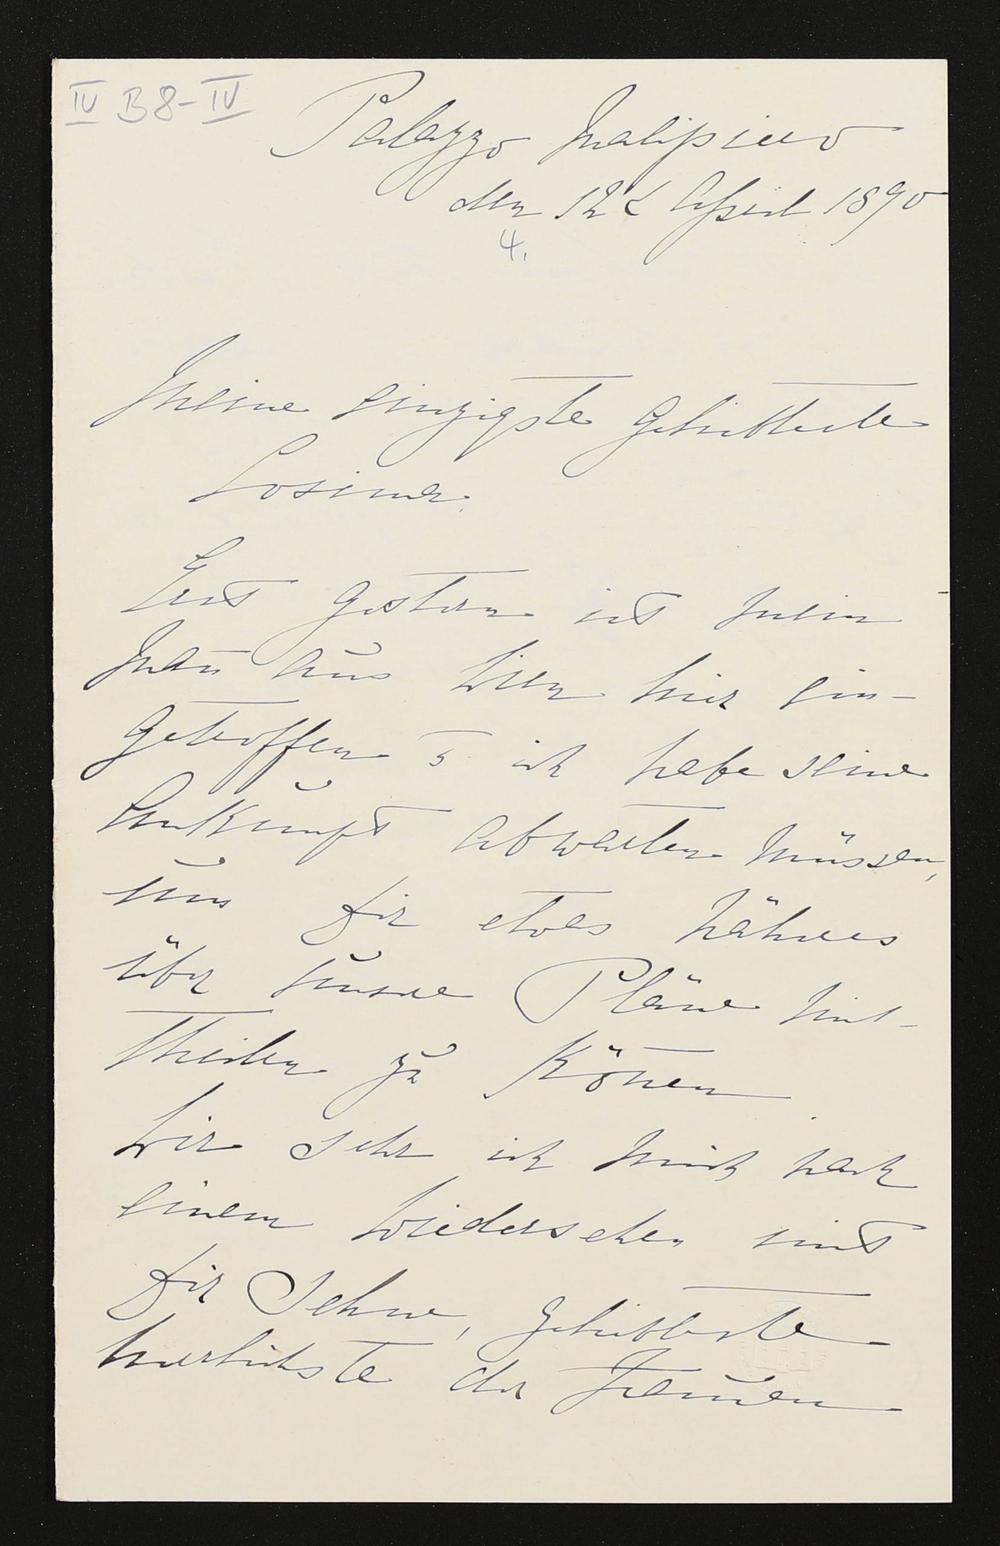 IV B 8-IV
Palazzo Malipiero
den 12t April 1890
4.
Meine einzigste Geliebteste
Cosima.
Erst gestern ist mein
Man̄ aus Wien hier ein-
getroffen u ich habe seine
Ankunft abwarten müssen,
um Dir etwas Näheres
über unsere Pläne mit-
theilen zu kön̄en
Wie sehr ich mich nach
einem Wiedersehen mit
Dir sehne, geliebteste
herrlichste der Frauen